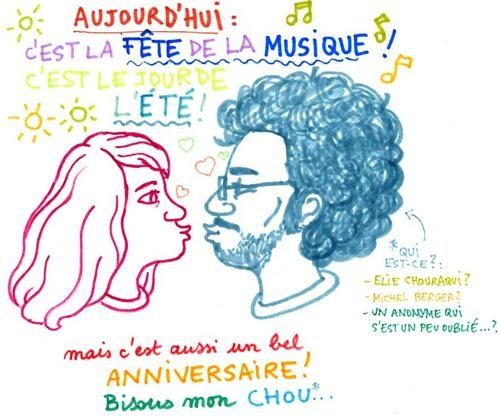 AUJOURD'HUI :
C'EST LA FÊTE DE LA MUSIQUE !
C'EST LE JOUR DE
L'ÉTÉ !
*QUI
EST-CE ? :
- ELIE CHOURAQUI ?
- MICHEL BERGER ?
- UN ANONYME QUI
S'EST UN PEU OUBLIÉ...?
mais c'est aussi un bel
ANNIVERSAIRE !
Bisous mon CHOU*...